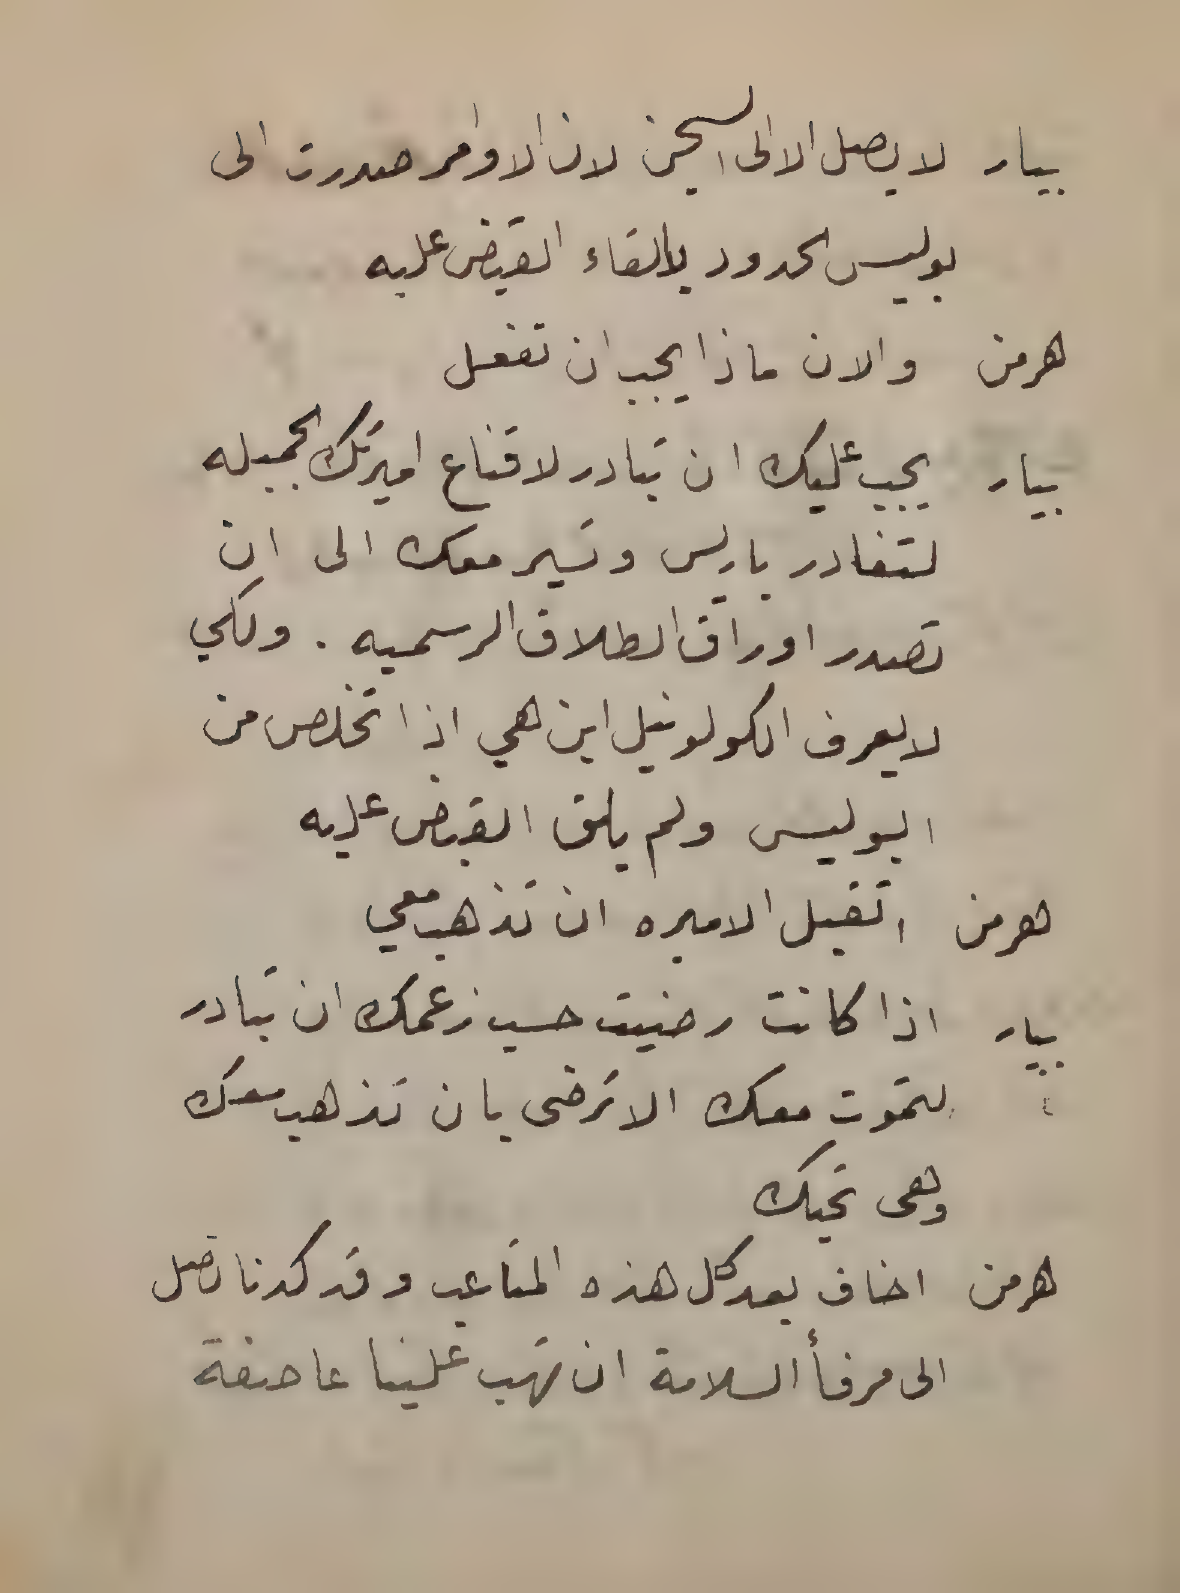 بيار لا يصل الا الى السجن لان الاوامر صدرت الى
بوليس الحدود بالقاء القبض عليه
هرمن والان ماذا يجب ان تفعل
بيار يجب عليك ان تبادر لاقناع اميرتك الجميله
لتغادر باريس وتسير معك الى ان
تصدر اوراق الطلاق الرسميه . ولكي
لا يعرف الكولونيل اين هي اذا تخلص من
البوليس ولم يلق القبض عليه
هرمن اتقبل الاميره ان تذهب معي
بيار اذا كانت رضيت حسب زعمك ان تبادر
لتموت معك الا ترضى بان تذهب معك
وهي تحبك
هرمن اخاف بعد كل هذه المتاعب وقد كدنا نصل
الى مرفأ السلامة ان تهب علينا عاصفة